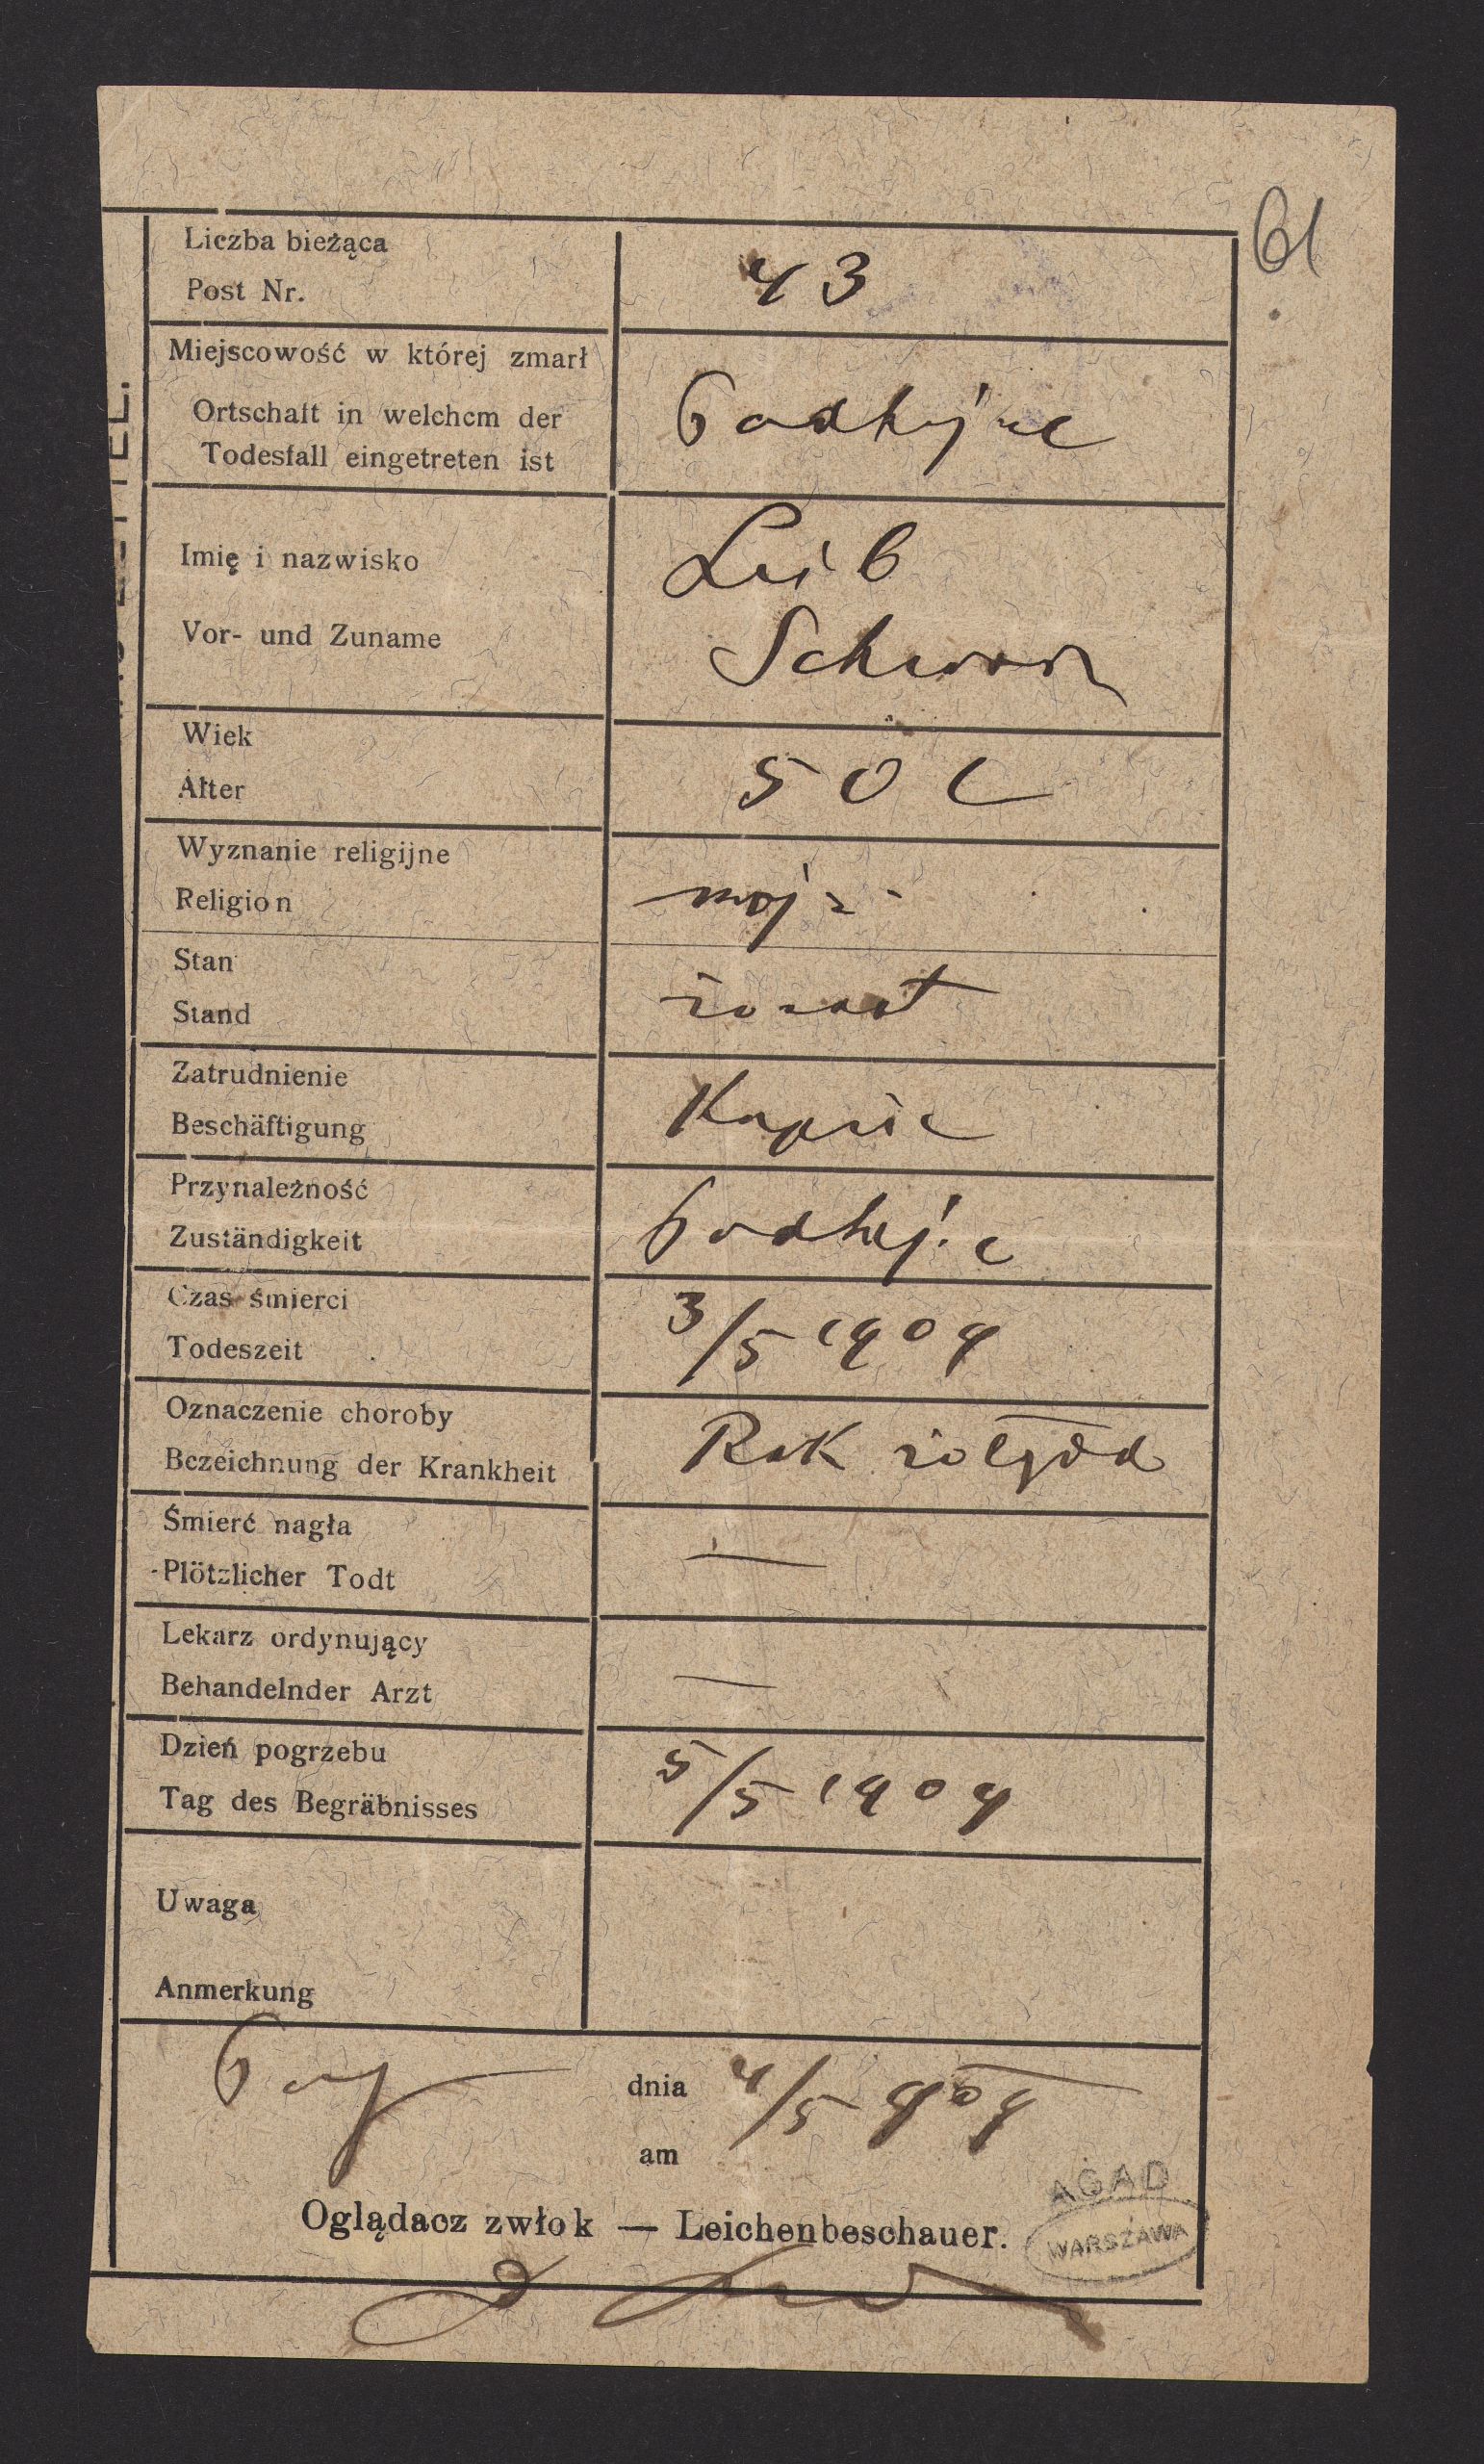 61
Liczba bieżąca
Post Nr.
43
Miejscowość w której zmarł
Ortschaft in welchem der
Todesfall eingetreten ist
Podhajce
Imię i nazwisko
Vor- und Zuname
Leib
Schwarz
Wiek
Alter
50 l
Wyznanie religijne
Religion
mojż
Stan
Stand
żonaty
Zatrudnienie
Beschäftigung
Kupiec
Przynależność
Zuständigkeit
Podhajce
Czas śmierci
Todeszeit
3/5 1909
Oznaczenie choroby
Bezeichnung der Krankheit
Rak żołądka
Śmierć nagła
Plötzlicher Todt
—
Lekarz ordynujący
Behandelnder Arzt
—
Dzień pogrzebu
Tag des Begräbnisses
5/5 1909
Uwaga
Anmerkung
dnia 4/5 909
am
Oglądacz zwłok — Leichenbeschauer.
AGAD
WARSZAWA